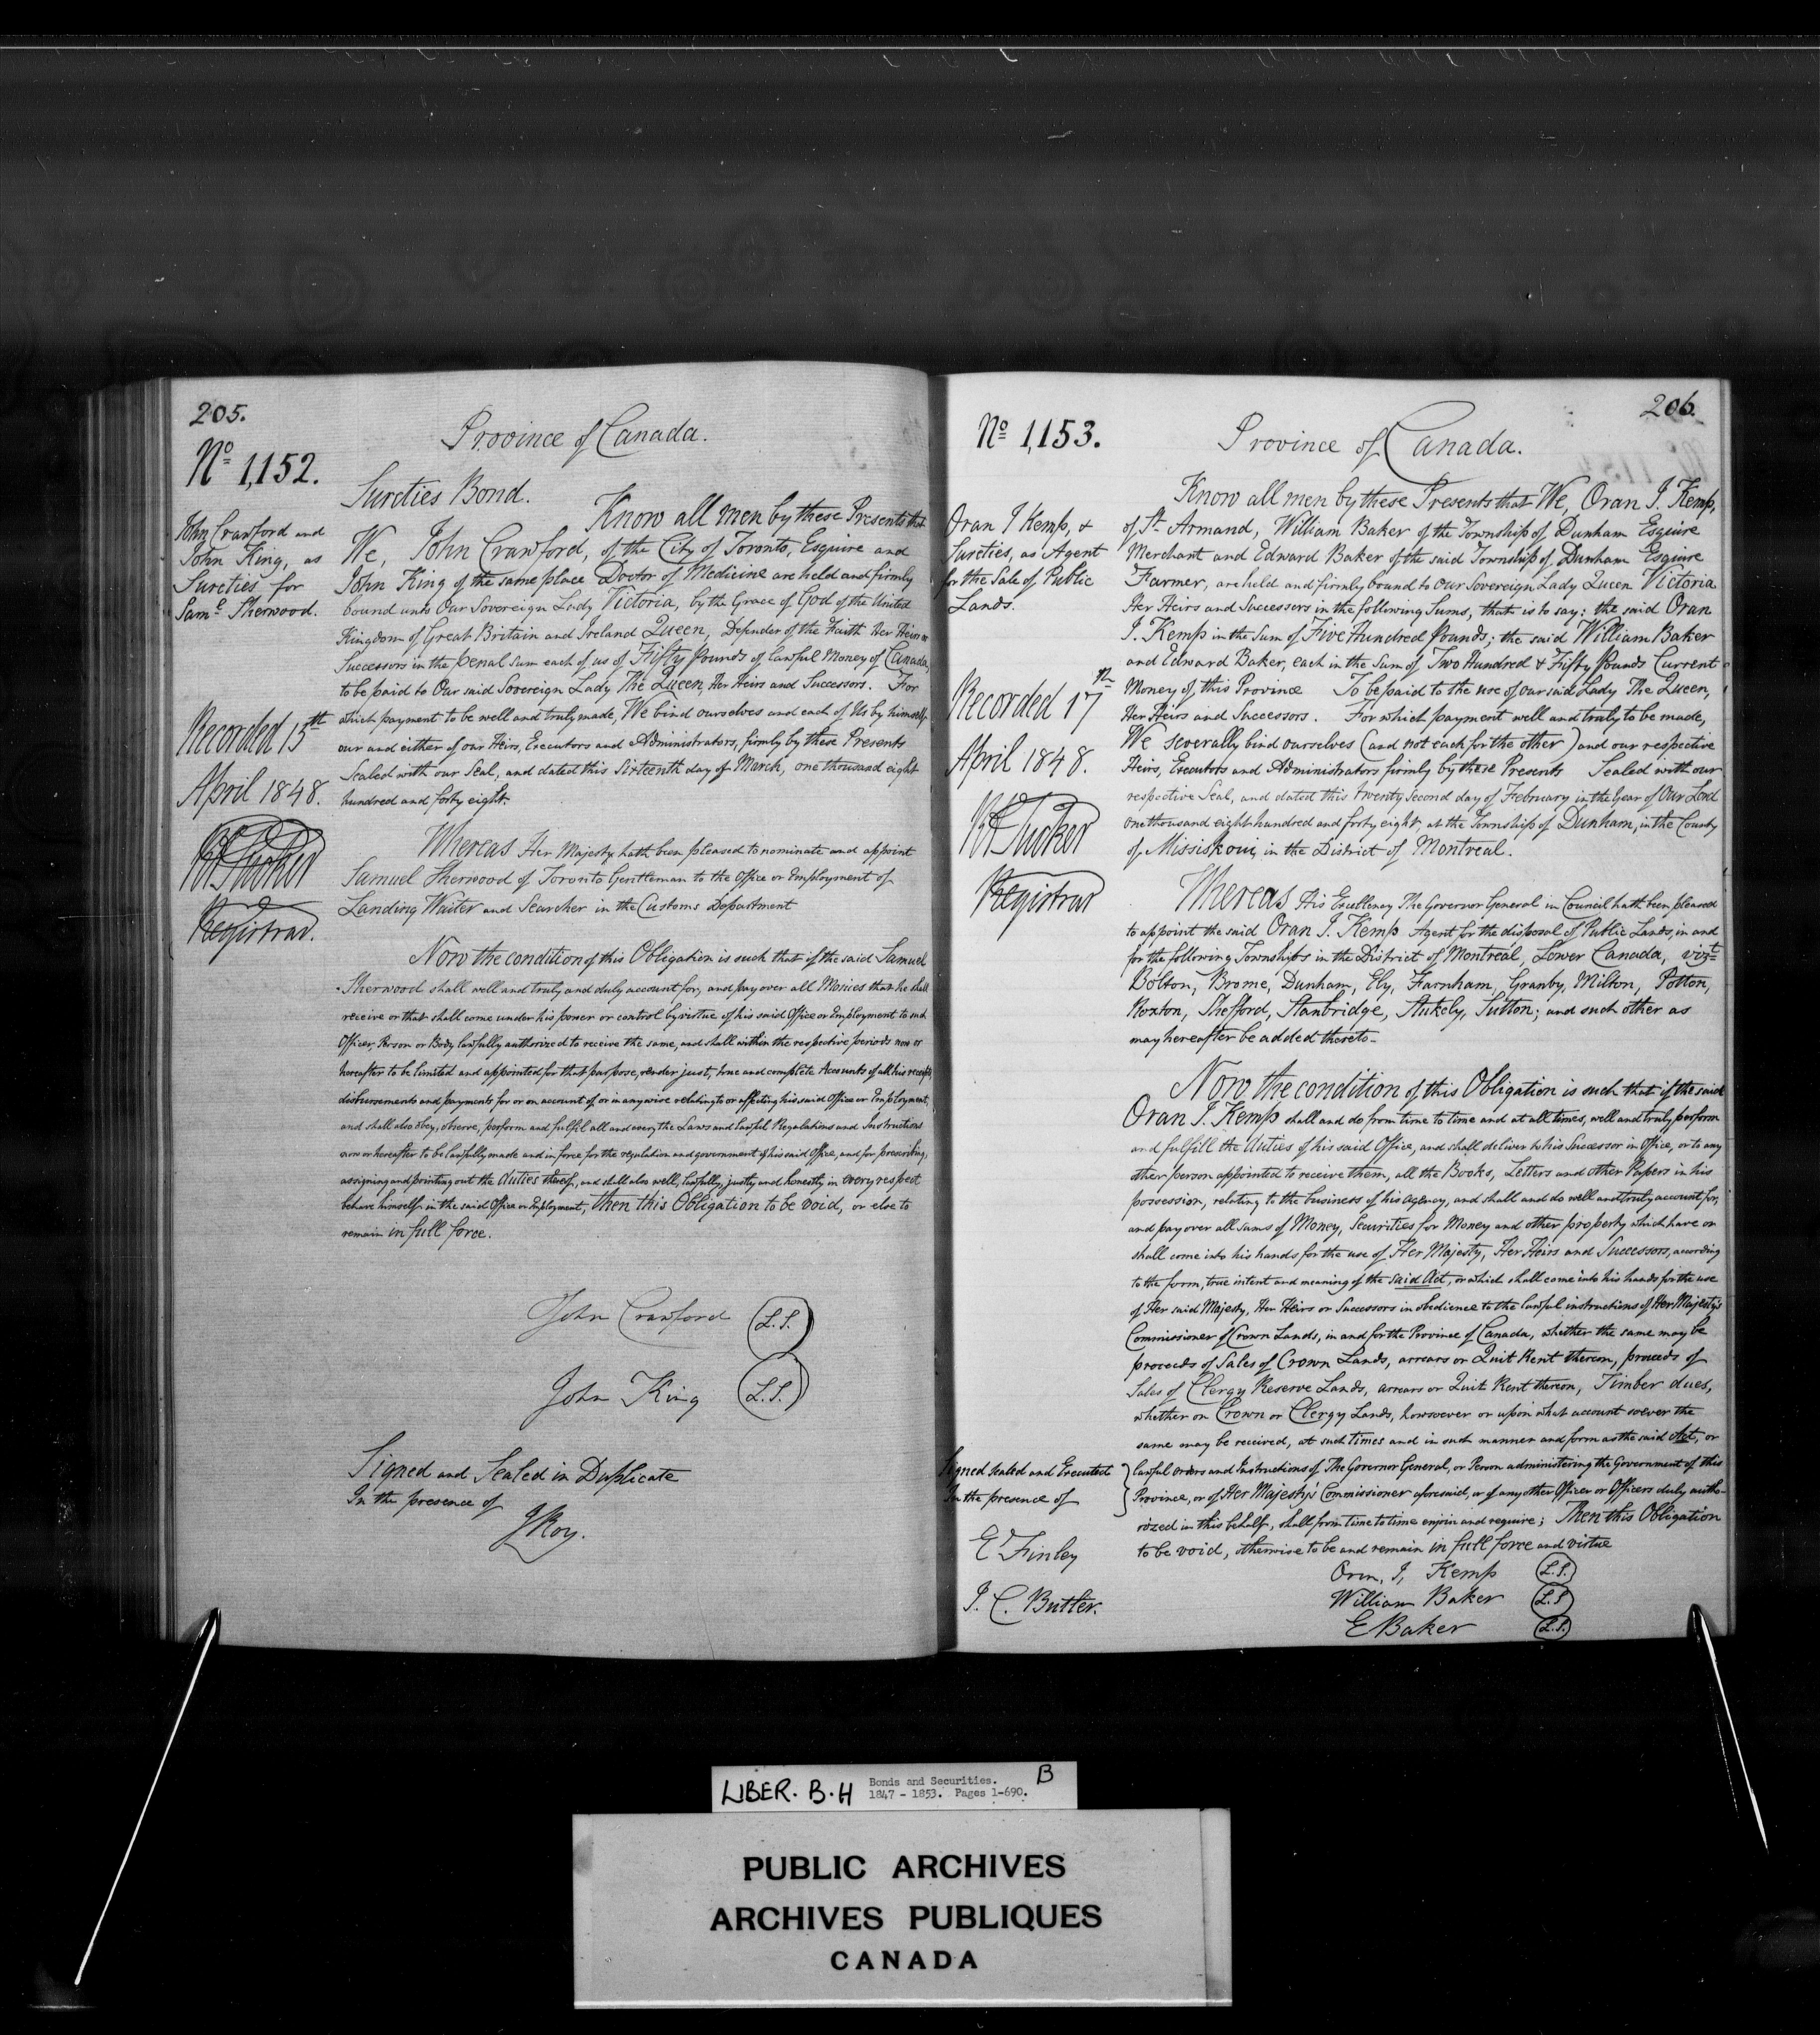 205.
No 1,152.
Province of Canada.
Sureties Bond.
John Crawford and
John King, as
Sureties for
Saml. Sherwood.
Recorded 15th
April 1848.
Registrar.
Know all men by these Presents that
We, John Crawford, of the City of Toronto, Esquire and
John King of the same place Doctor of Medicine are held and firmly
bound unto Our Sovereign Lady Victoria, by the Grace of God of the United
Kingdom of Great Britain and Ireland Queen, Defender of the Faith Her Heirs or
Successors in the penal sum each of us of Fifty Pounds of lawful Money of Canada,
to be paid to Our said Sovereign Lady The Queen, Her Heirs and Successors. For
which payment to be well and truly made, We bind ourselves and each of Us by himself
our and either of our Heirs, Executors and Administrators, firmly by these Presents
Sealed with our Seal, and dated this Sixteenth day of March, one thousand eight
hundred and forty eight.
Whereas Her Majesty hath been pleased to nominate and appoint
Samuel Sherwood of Toronto Gentleman to the Office or Employment of
Landing Waiter and Searcher in the Customs Department
Now the condition of this Obligation is such that if the said Samuel
Sherwood shall well and truly and duly account for, and pay over all Monies that he shall
receive or that shall come under his power or control by virtue of his said Office or Employment to such
Officer, Person or Body lawfully authorized to receive the same, and shall within the respective periods now or
hereafter to be limited and appointed for that purpose, render just, true and complete Accounts of all his receipts
disbursements and payments for or on account of or in anywise relating to or affecting his said Office or Employment,
and shall also obey, observe, perform and fulfil all and every the Laws and lawful Regulations and Instructions
now or hereafter to be lawfully made and in force for the regulation and government of his said Office, and for prescribing,
assigning and pointing out the duties thereof, and shall also well, lawfully, justly and honestly in every respect
behave himself in the said Office or Employment, then this Obligation to be void, or else to
remain in full force.
John Crawford (L.S.)
John King (L.S.)
Signed and Sealed in Duplicate
In the presence of
J Roy.
206.
No 1,153.
Province of Canada.
Oran J Kemp, &
Sureties, as Agent
for the Sale of Public
Lands.
Recorded 17th
April 1848.
Registrar
Know all men by these Presents that We, Oran J. Kemp,
of St. Armand, William Baker of the Township of Dunham Esquire
Merchant and Edward Baker of the said Township of Dunham Esquire
Farmer, are held and firmly bound to our Sovereign Lady Queen Victoria
Her Heirs and Successors in the following Sums, that is to say: the said Oran
J. Kemp in the Sum of Five Hundred Pounds; the said William Baker
and Edward Baker, each in the Sum of Two Hundred & Fifty Pounds Current
Money of this Province To be paid to the use of our said Lady The Queen,
Her Heirs and Successors. For which payment well and truly to be made,
We severally bind ourselves (and not each for the other) and our respective
Heirs, Executors and Administrators firmly by these Presents Sealed with our
respective Seal, and dated this twenty second day of February in the Year of Our Lord
one thousand eight hundred and forty eight, at the Township of Dunham, in the County
of Missiskoui, in the District of Montreal.
Whereas His Excellency The Governor General in Council hath been pleased
to appoint the said Oran J. Kemp Agent for the disposal of Public Lands, in and
for the following Townships in the District of Montreal, Lower Canada, vizt
Bolton, Brome, Dunham, Ely, Farnham, Granby, Milton, Potton,
Roxton, Shefford, Stanbridge, Stukely, Sutton; and such other as
may hereafter be added thereto-
Now the condition of this Obligation is such that if the said
Oran J. Kemp shall and do from time to time and at all times, well and truly perform
and fulfill the duties of his said Office, and shall deliver to his Successor in Office, or to any
other person appointed to receive them, all the Books, Letters and other Papers in his
possession, relating to the business of his Agency, and shall and do well and truly account for,
and pay over all sums of Money, Securities for Money and other property which have or
shall come into his hands for the use of Her Majesty, Her Heirs and Successors, according
to the form, true intent and meaning of the said Act, or which shall come into his hands for the use
of Her said Majesty, Her Heirs or Successors in obedience to the lawful instructions of Her Majesty's
Commissioner of Crown Lands, in and for the Province of Canada, whether the same may be
proceeds of Sales of Crown Lands, arrears or Quit Rent thereon, proceeds of
Sales of Clergy Reserve Lands, arrears or Quit Rent thereon, Timber dues,
whether on Crown or Clergy Lands, howsoever or upon what account soever the
same may be received, at such times and in such manner and form as the said Act, or
lawful orders and Instructions of The Governor General, or Person administering the Government of this
Province, or of Her Majesty's Commissioner aforesaid, or of any other Officer or Officers duly autho-
rized in this behalf, shall from time to time enjoin and require; Then this Obligation
to be void, otherwise to be and remain in full force and virtue
Signed sealed and Executed
In the presence of
E Finley
J. C. Butler.
Oran, J, Kemp (L.S.)
William Baker (L.S)
E Baker (L.S.)
LIBER. B.H
Bonds and Securities.
1847 - 1853. Pages 1-690.
B
PUBLIC ARCHIVES
ARCHIVES PUBLIQUES
CANADA